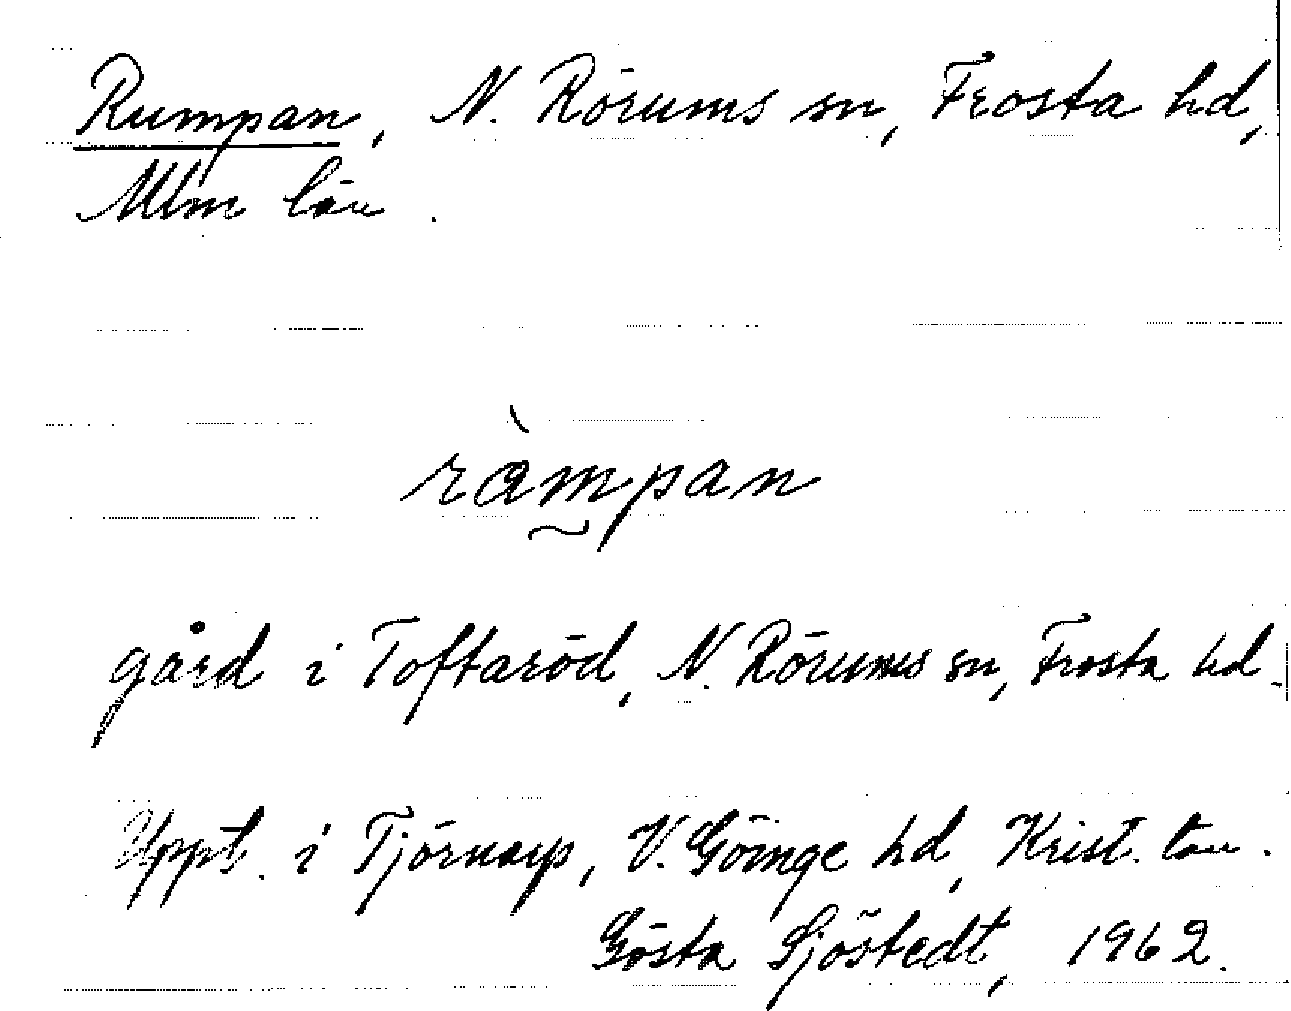 Rumpan, N. Rörums sn, Frosta hd,
Mlm län.
ràmpan
gård i Toftaröd, N. Rörums sn, Frosta hd.
Uppt. i Tjörnarp, V. Göinge hd, Krist. län.
Gösta Sjöstedt, 1962.